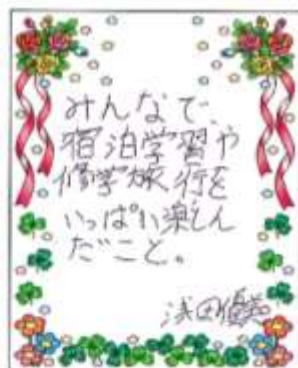 みんなで、
宿泊学習や
修学旅行を
いっぱい楽しん
だこと。
浅田優